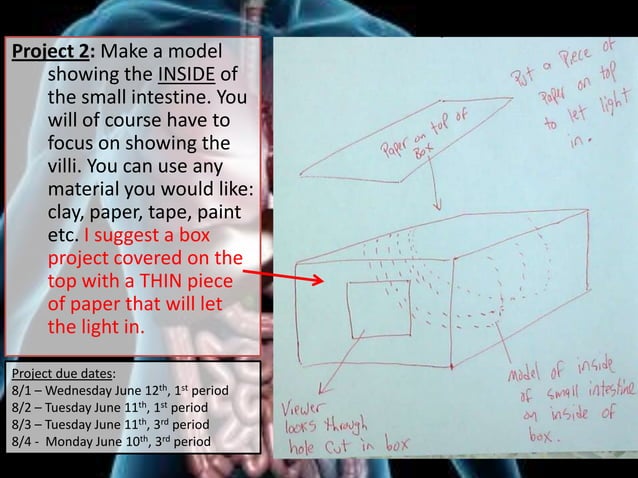 Project 2: Make a model
showing the INSIDE of
the small intestine. You
will of course have to
focus on showing the
villi. You can use any
material you would like:
clay, paper, tape, paint
etc. I suggest a box
project covered on the
top with a THIN piece
of paper that will let
the light in.
Project due dates:
8/1 – Wednesday June 12th, 1st period
8/2 – Tuesday June 11th, 1st period
8/3 – Tuesday June 11th, 3rd period
8/4 - Monday June 10th, 3rd period
Put a Piece of
Paper on top
to let light
in.
Paper on top of
Box
Viewer
looks through
hole cut in box
Model of inside
of small intestine
on inside of
box.